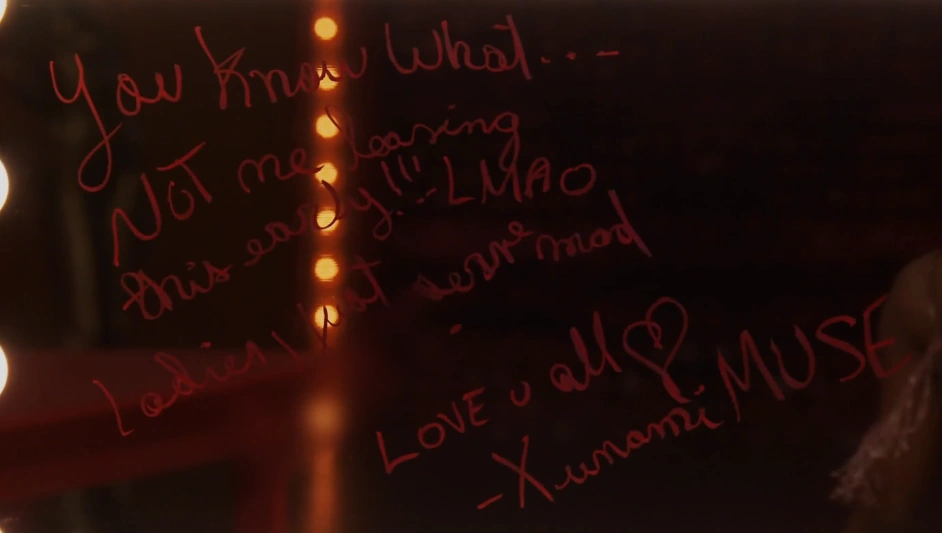 You Know What...-
NOT me leaving
this early!!! LMAO
Ladies, that serve mad
LOVE u all
-Xunami MUSE